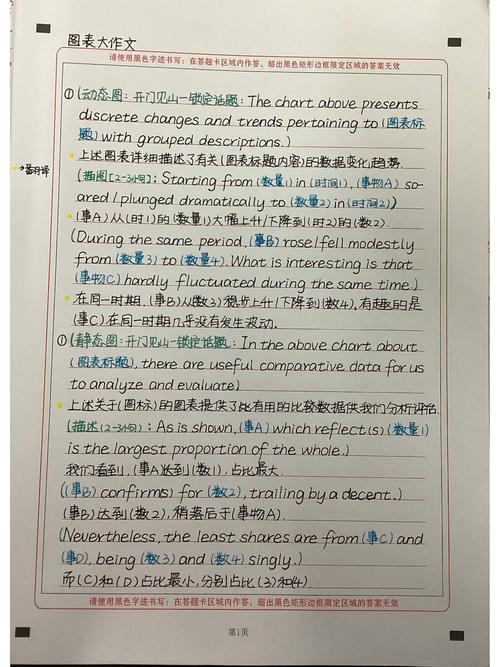 图表大作文
请使用黑色字迹书写：在答题卡区域内作答，超出黑色矩形边框限定区域的答案无效
①(动态图：开门见山—锁定话题：The chart above presents
discrete changes and trends pertaining to (图表标
题) with grouped descriptions.)
上述图表详细描述了有关(图表标题内容)的数据变化趋势.
→翻译
(描图[2-3句]：Starting from (数量1) in (时间1), (事物A) so-
ared / plunged dramatically to (数量2) in (时间2))
(事A)从(时1)的(数量1)大幅上升/下降到(时2)的(数2).
(During the same period, (事B) rose/fell modestly
from (数量3) to (数量4). What is interesting is that
(事物C) hardly fluctuated during the same time.)
在同一时期,(事B)从(数3)稳步上升/下降到(数4),有趣的是
(事C)在同一时期几乎没有发生波动.
①(静态图：开门见山—锁定话题：In the above chart about
(图表标题), there are useful comparative data for us
to analyze and evaluate)
上述关于(图标)的图表提供了比有用的比较数据供我们分析评估
(描述(2-3句)：As is shown, (事A) which reflect(s) (数量1)
is the largest proportion of the whole.)
我们看到,(事A达到(数1),占比最大.
((事B) confirm(s) for (数2), trailing by a decent.)
(事B)达到(数2),稍落后于(事物A).
(Nevertheless, the least shares are from (事C) and
(事D), being (数3) and (数4) singly.)
而(C)和(D)占比最小,分别占比(3)和(4).
请使用黑色字迹书写：在答题卡区域内作答，超出黑色矩形边框限定区域的答案无效
第1页